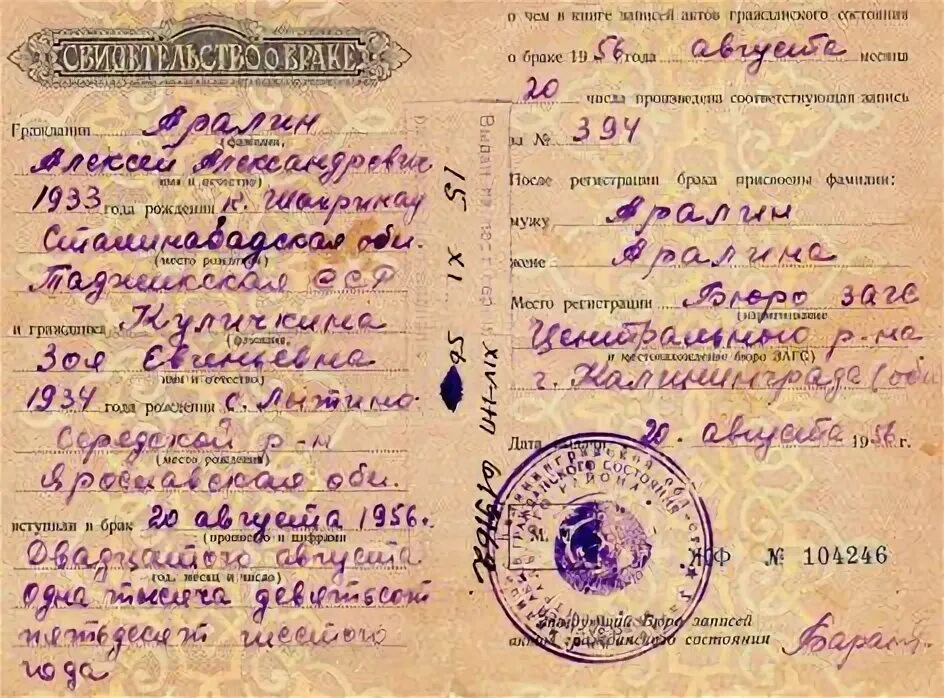 СВИДЕТЕЛЬСТВО О БРАКЕ
Гражданин Аралин
(фамилия,
Алексей Александрович
имя и отчество)
1933 года рождения к. Шахринау
Сталинабадская обл.
(место рождения)
Таджикская ССР
и гражданка Куличкина
(фамилия,
Зоя Евгеньевна
имя и отчество)
1934 года рождения с. Лытина
Середской р-н
(место рождения)
Ярославская обл.
вступили в брак 20 августа 1956г.
(прописью и цифрами
Двадцатого августа
год, месяц и число)
одна тысяча девятьсот
пятьдесят шестого
года
о чем в книге записей актов гражданского состояния
о браке 1956 года августа месяца
20 числа произведена соответствующая запись
за № 394
После регистрации брака присвоены фамилии:
мужу Аралин
жене Аралина
Место регистрации Бюро ЗАГС
(наименование
Центрального р-на
и местонахождение бюро ЗАГС)
г. Калининграда (обл
Дата 20 августа 1956 г.
М.
ЖФ № 104246
Заведующий Бюро записей
актов гражданского состояния